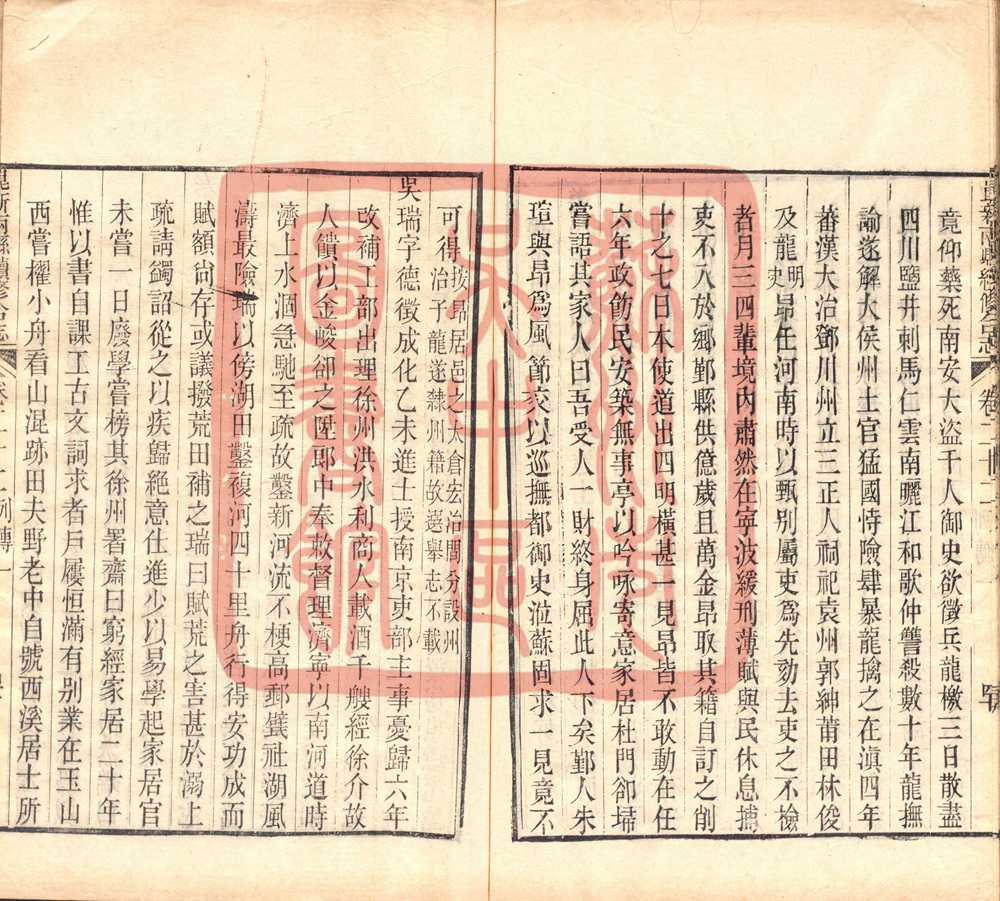 竟仰藥死南安大盜千人御史欲徵兵龍檄三日散盡
四川鹽井剌馬仁雲南曬江和歌仲讐殺數十年龍撫
諭遂解大侯州土官猛國恃險肆暴龍擒之在滇四年
蕃漢大治鄧川州立三正人祠祀袁州郭紳莆田林俊
及龍明史昂任河南時以甄別屬吏爲先劾去吏之不檢
者月三四輩境內肅然在寧波緩刑薄賦與民休息捕
吏不入於鄉鄞縣供億歲且萬金昂取其籍自訂之削
十之七日本使道出四明橫甚一見昂皆不敢動在任
六年政飭民安築無事亭以吟咏寄意家居杜門卻埽
嘗語其家人曰吾受人一財終身屈此人下矣鄞人朱
瑄與昂爲風節交以巡撫都御史涖蘇固求一見竟不
可得按昂居邑之太倉宏治間分設州治子龍遂隸州籍故選舉志不載
吳瑞字德徵成化乙未進士授南京吏部主事憂歸六年
改補工部出理徐州洪水利商人載酒千艘經徐介故
人饋以金峻卻之陞郎中奉敕督理濟寧以南河道時
濟上水涸急馳至疏故鑿新河流不梗高郵甓社湖風
濤最險瑞以傍湖田鑿複河四十里舟行得安功成而
賦額尙存或議撥荒田補之瑞曰賦荒之害甚於溺上
疏請蠲詔從之以疾歸絕意仕進少以易學起家居官
未嘗一日廢學嘗榜其徐州署齋曰窮經家居二十年
惟以書自課工古文詞求者戶屨恒滿有別業在玉山
西嘗櫂小舟看山混跡田夫野老中自號西溪居士所